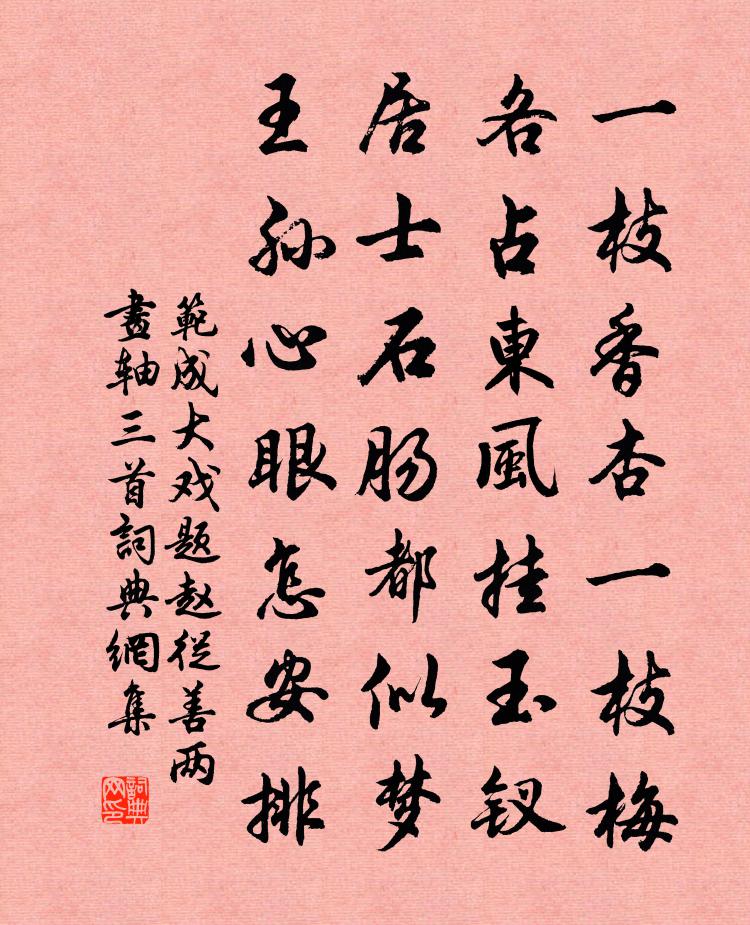 一枝香杏一枝梅
各占東風挂玉釵
居士石肠都似梦
王孙心眼怎安排
範成大戏題赵從善两
畫轴三首詞典網集
詞典网印